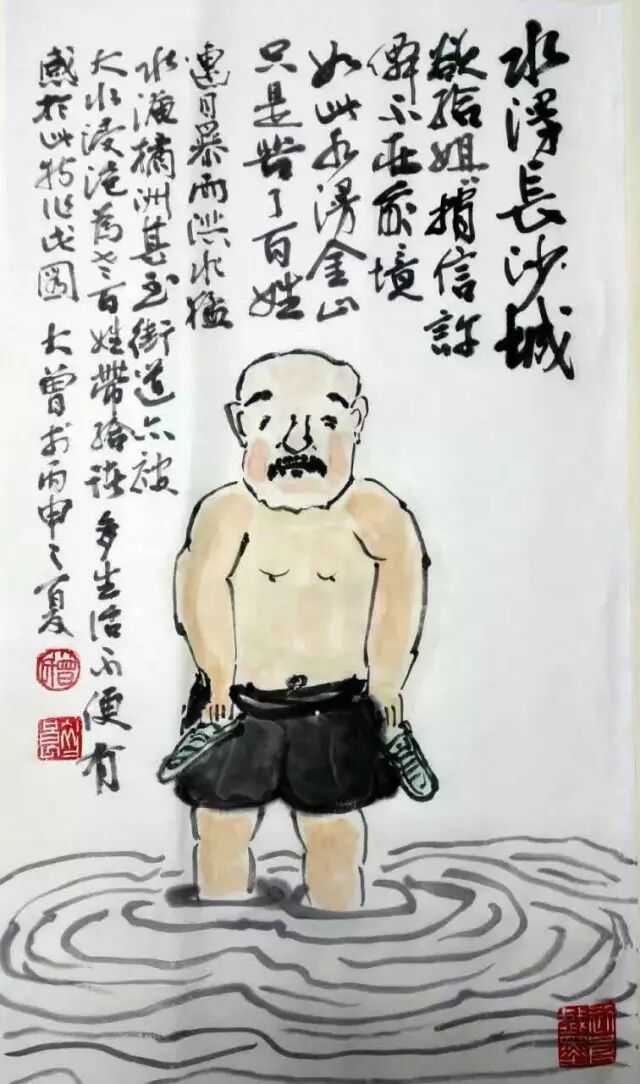 水漫長沙城
欲給姐姐捎信許
僊不在敝境
如此水漫金山
只是苦了百姓
連日暴雨洪水猛
水漫橘洲甚至街道亦被
大水浸淹為老百姓帶給諸多生活不便有
感於此特作此圖 大曾於丙申之夏